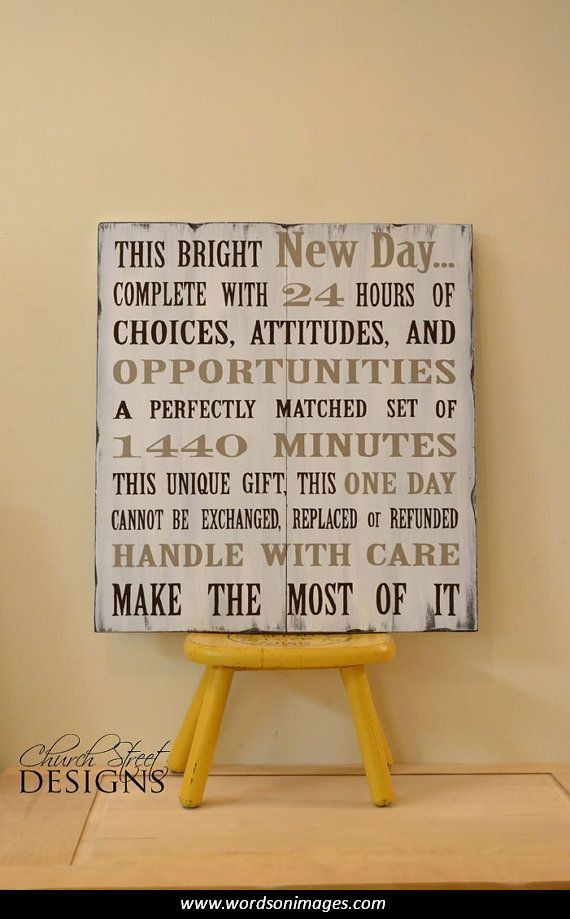 THIS BRIGHT New Day...
COMPLETE WITH 24 HOURS OF
CHOICES, ATTITUDES, AND
OPPORTUNITIES
A PERFECTLY MATCHED SET OF
1440 MINUTES
THIS UNIQUE GIFT, THIS ONE DAY
CANNOT BE EXCHANGED, REPLACED or REFUNDED
HANDLE WITH CARE
MAKE THE MOST OF IT
Church Street
DESIGNS
www.wordsonimages.com